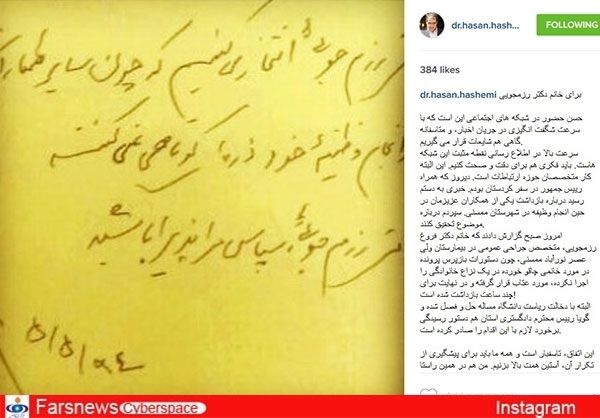 dr.hasan.hash...
FOLLOWING
384 likes
dr.hasan.hashemi برای خانم دکتر رزمجویی
حسن حضور در شبکه های اجتماعی این است که با
سرعت شگفت انگیزی در جریان اخبار، و متاسفانه
گاهی هم شایعات قرار می گیریم.
سرعت بالا در اطلاع رسانی نقطه مثبت این شبکه
هاست. باید فکری هم برای دقت و صحت کنیم. این البته
کار متخصصان حوزه ارتباطات است. دیروز که همراه
رییس جمهور در سفر کردستان بودم. خبری به دستم
رسید درباره بازداشت یکی از همکاران عزیزمان در
حین انجام وظیفه در شهرستان ممسنی. سپردم درباره
موضوع تحقیق کنند.
امروز صبح گزارش دادند که خانم دکتر فروغ
رزمجویی، متخصص جراحی عمومی در بیمارستان ولی
عصر نورآباد ممسنی، چون دستورات بازپرس پرونده
در مورد خانمی چاقو خورده در یک نزاع خانوادگی را
اجرا نکرده، مورد عتاب قرار گرفته و در نهایت برای
چند ساعت بازداشت شده است!
البته با دخالت ریاست دانشگاه مساله حل و فصل شده و
گویا رییس محترم دادگستری استان هم دستور رسیدگی
برخورد لازم با این اقدام را صادر کرده است.
این اتفاق، تاسفبار است و همه ما باید برای پیشگیری از
تکرار آن، آستین همت بالا بزنیم. من هم در همین راستا
رزم جوئی افتخار می کنیم که چون سایر
انجام وظیفهٔ خود ذره ای کوتاهی نمی کنند
رزم جوئی سپاس مرا پذیرا باشید
۵/۵/۹۴
Farsnews Cyberspace
Instagram